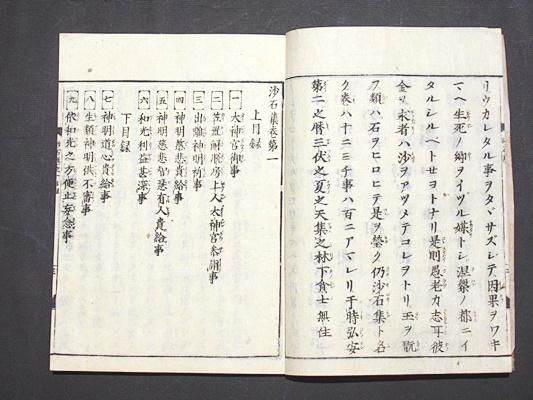 リウカレタル事ヲタヾサズシテ因果ヲワキ
マヘ生死ノ郷ヲイヅル媒トシ涅槃ノ都ニイ
タルシルベトセヨトナリ是則愚老カ志耳彼
金ヲ求者ハ沙ヲアツメテコレヲトリ玉ヲ翫
フ類ハ石ヲヒロヒテ是ヲ瑩ク仍沙石集ト名
ク巻ハ十ニミチ事ハ百ニアマレリ于時弘安
第二之暦三伏之夏之天集之林下貧士無住
沙石集巻第一
上目録
一 大神宮御事
二 笠置解脱房上人大神宮参詣事
三 出離神明祈事
四 神明慈悲貴給事
五 神明慈悲智慧有人貴給事
六 和光利益甚深事
下目録
七 神明道心貴給事
八 生類神明供不審事
九 依和光之方便止妄念事